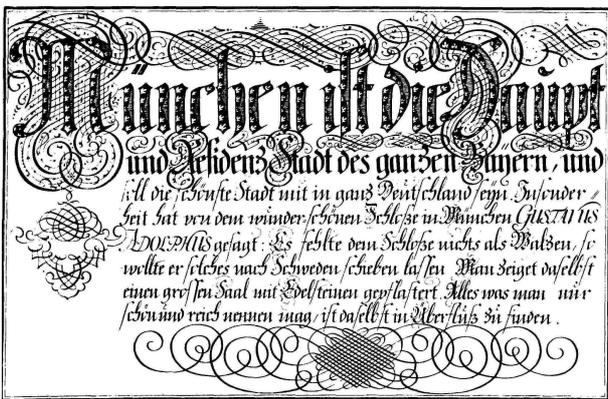 München ist die Haupt
und Residenz Stadt des ganzen Bayern, und
soll die schönste Stadt mit in ganz Deutschland seyn. Insonder⸗
heit hat von dem wunder-schönen Schloße in München GUSTAVUS
ADOLPHUS gesagt: Es fehlte dem Schloße nichts als Walzen, so
wollte er solches nach Schweden schieben lassen. Man zeiget daselbst
einen grossen Saal mit Edelsteinen gepflastert. Alles was man nur
schön und reich nennen mag, ist daselbst in Überfluß zu finden.